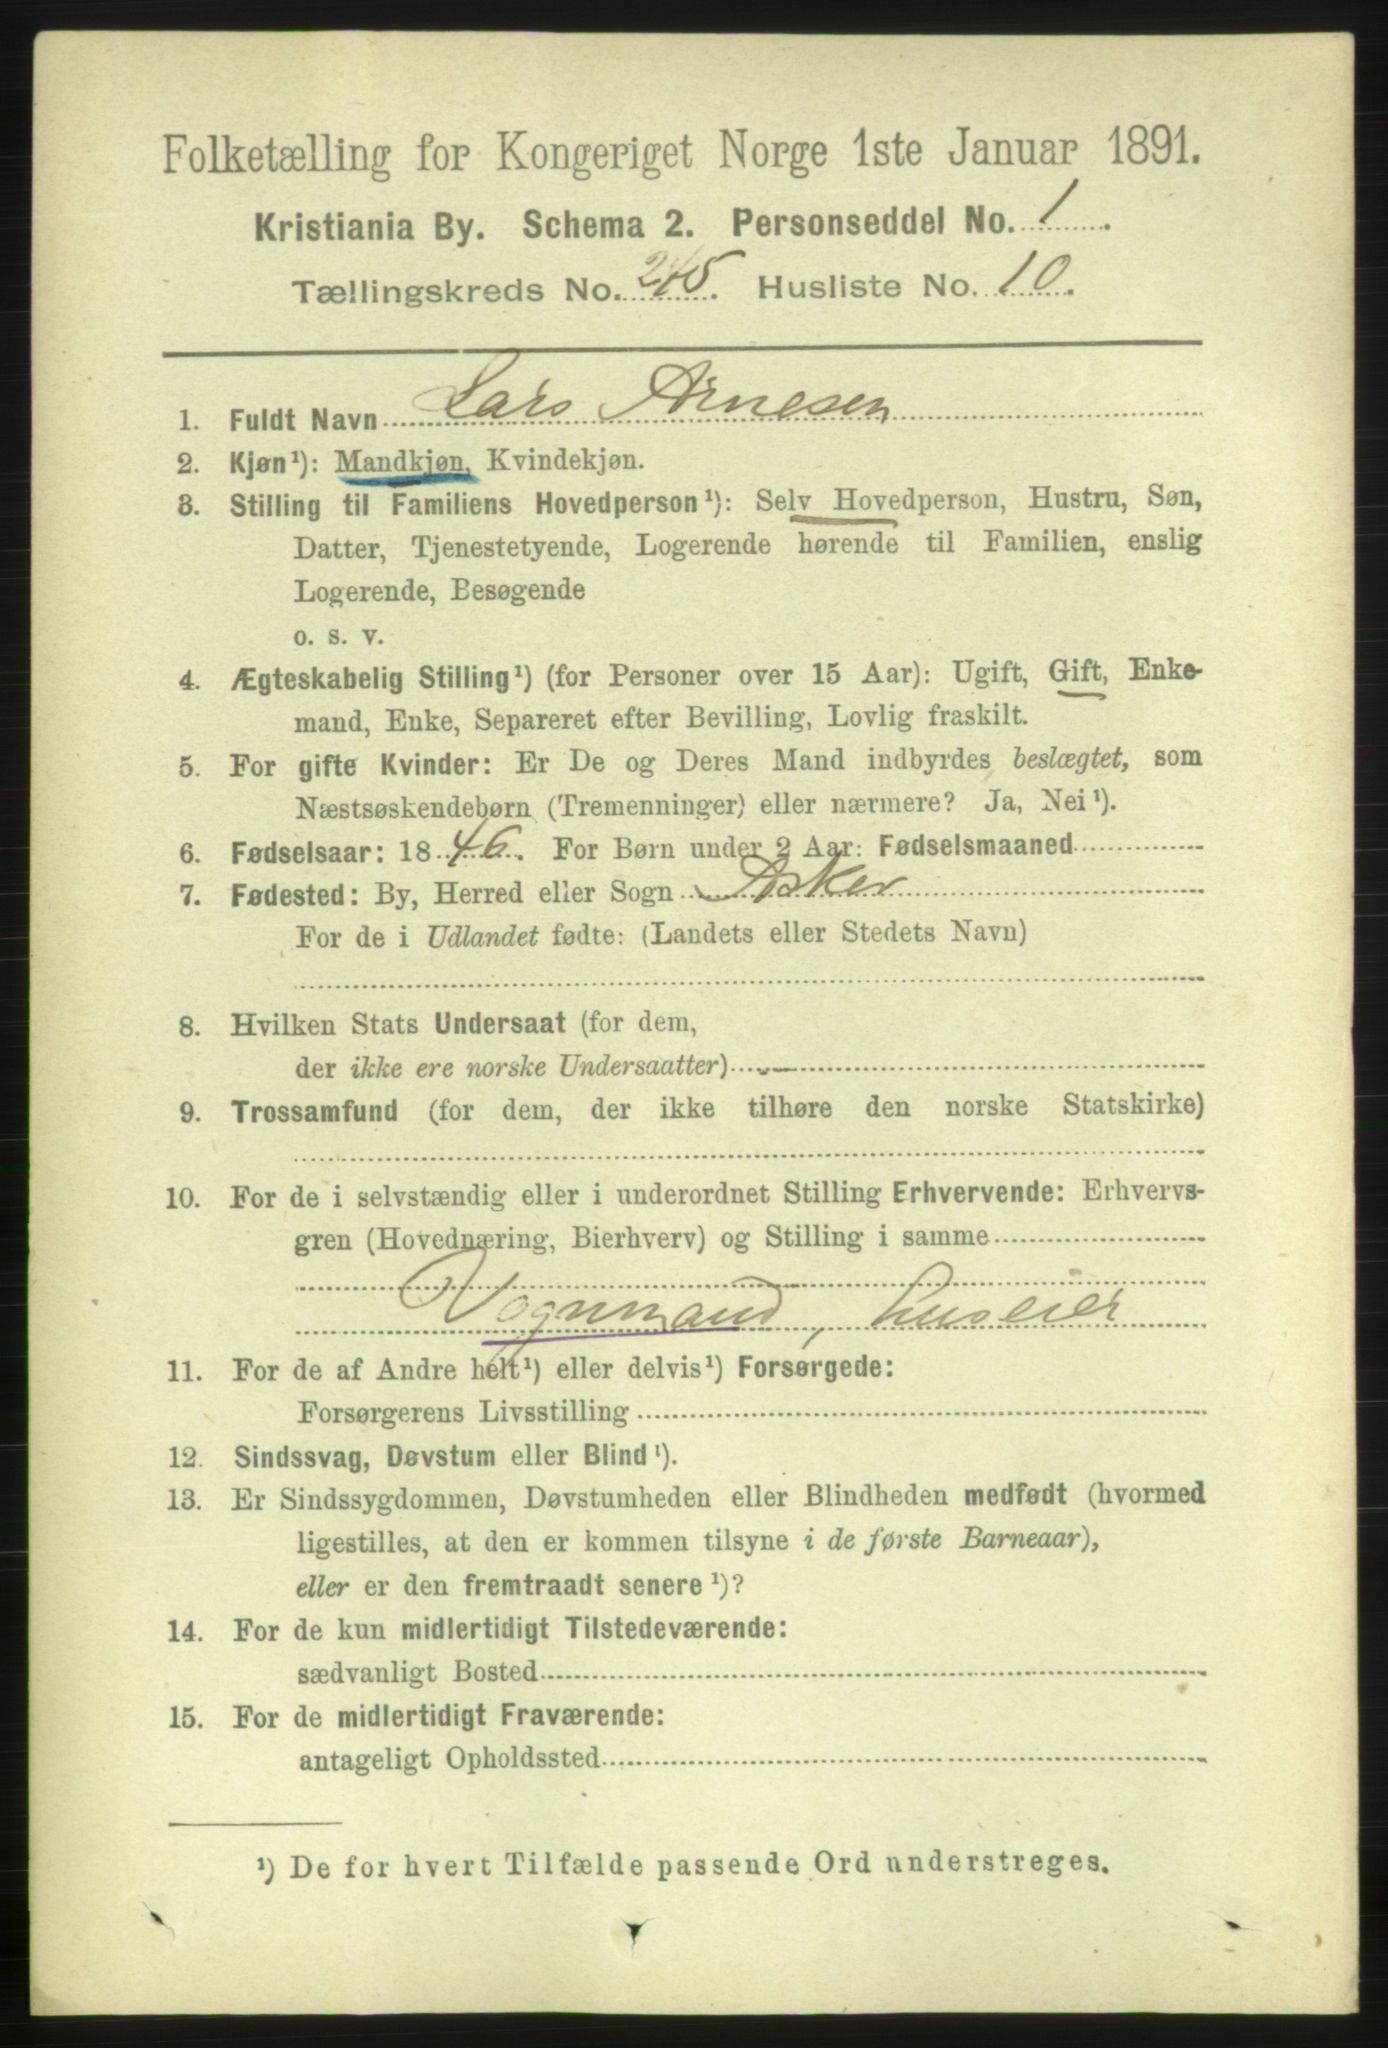 Folketælling for Kongeriget Norge 1ste Januar 1891.
Kristiania By. Schema 2. Personseddel No. 1.
Tællingskreds No. 245. Husliste No. 10.
1. Fuldt Navn Lars Arnesen
2. Kjøn¹): Mandkjøn, Kvindekjøn.
3. Stilling til Familiens Hovedperson¹): Selv Hovedperson, Hustru, Søn,
Datter, Tjenestetyende, Logerende hørende til Familien, enslig
Logerende, Besøgende
o. s. v.
4. Ægteskabelig Stilling¹) (for Personer over 15 Aar): Ugift, Gift, Enke-
mand, Enke, Separeret efter Bevilling, Lovlig fraskilt.
5. For gifte Kvinder: Er De og Deres Mand indbyrdes beslægtet, som
Næstsøskendebørn (Tremenninger) eller nærmere? Ja, Nei¹).
6. Fødselsaar: 1846. For Børn under 2 Aar: Fødselsmaaned
7. Fødested: By, Herred eller Sogn Asker
For de i Udlandet fødte: (Landets eller Stedets Navn)
8. Hvilken Stats Undersaat (for dem,
der ikke ere norske Undersaatter)
9. Trossamfund (for dem, der ikke tilhøre den norske Statskirke)
10. For de i selvstændig eller i underordnet Stilling Erhvervende: Erhvervs-
gren (Hovednæring, Bierhverv) og Stilling i samme
Vognmand, huseier
11. For de af Andre helt¹) eller delvis¹) Forsørgede:
Forsørgerens Livsstilling
12. Sindssvag, Døvstum eller Blind¹).
13. Er Sindssygdommen, Døvstumheden eller Blindheden medfødt (hvormed
ligestilles, at den er kommen tilsyne i de første Barneaar),
eller er den fremtraadt senere¹)?
14. For de kun midlertidigt Tilstedeværende:
sædvanligt Bosted
15. For de midlertidigt Fraværende:
antageligt Opholdssted
¹) De for hvert Tilfælde passende Ord understreges.